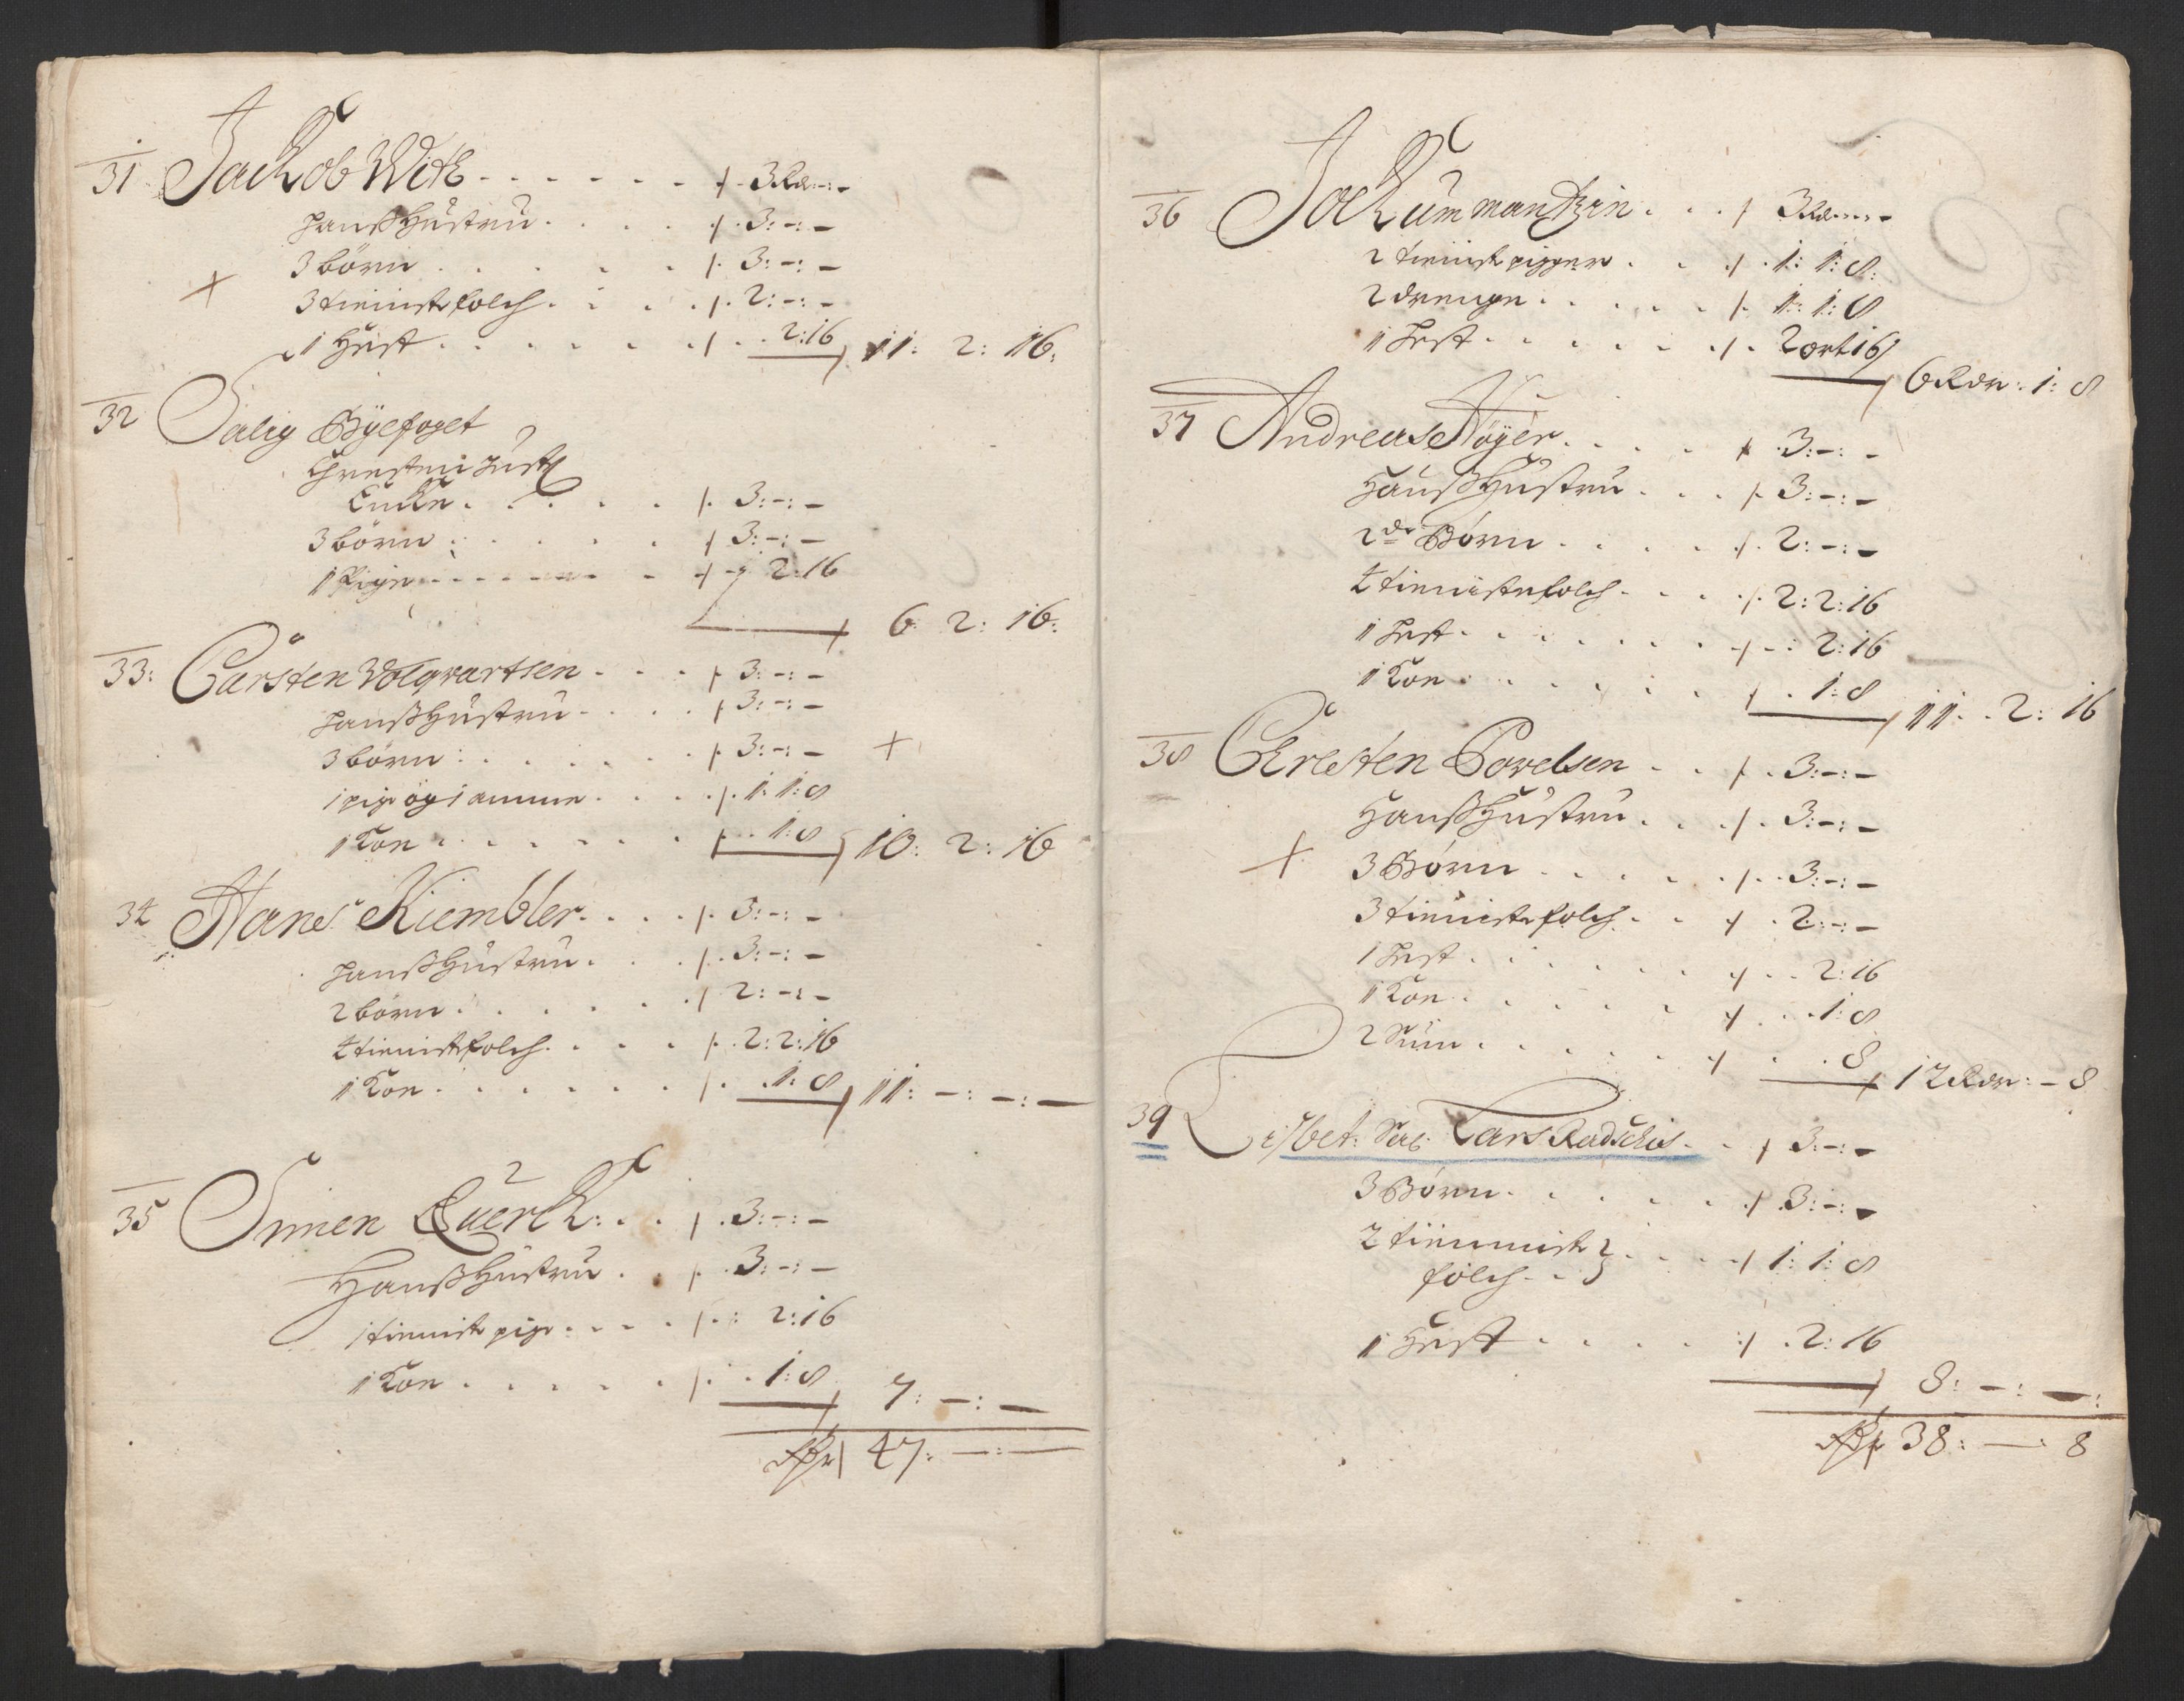 31 Jackob Wite - - - - - - ⁊ - 3 Rd:-:-
hanß Hustru . . . . ⁊ . 3:-:-
3 börn . . . . . ⁊ . 3:-:-
+ 3 tienniste folch . . . ⁊ . 2:-:-
1 Hest . . . . . . ⁊ . . 2:16 11: 2: 16:
32 Salig Byefoget
Chresten Justs
Encke . . . . . ⁊ . 3:-:-
3 börn . . . . . ⁊ 3:-:-
1 Pige - - - - - - - ⁊ - 2:16
6: 2: 16:
33: Carsten Volqvartsen - - - ⁊ 3:-:-
hanß Hustru - . . . ⁊ 3:-:-
3 börn : . . . . . ⁊ . 3:-:- +
1 pige og 1 amme . . . ⁊ . 1: 1: 8
1 Koe . . . . . . ⁊ . . 1: 8 10: 2: 16
34 Hans Kiembler . . . . ⁊ . 3:-:-
hanß Hustru . . . ⁊ . 3:-:-
2 börn . . . . . ⁊ 2:-:-
4 tienniste folch . . . . ⁊ . 2: 2: 16
1 Koe . . . . . . ⁊ . . 1: 8 11: -: -: -
35 Simen Querck : . . ⁊ . 3:-:-
Hanß Hustru . . ⁊ . 3:-:-
1 tienniste pige . . . . ⁊ . : 2:16
1 Koe . . . . . ⁊ . . 1: 8 7: -: -
47: -:-
36 Jockum mantzin . . . ⁊ 3 Rd:-:-
2 tienniste pigger . . . ⁊ . 1: 1: 8:
2 drenge . . . . . ⁊ . 1: 1: 8
1 Hest . . . . . . ⁊ . 2 ort 16
6 Rdr: 1: 8
37 Andreas Höyer . . . . ⁊ . 3:-: -
Hanß Hustru . . . ⁊ . 3:-:-
2de Börn . . . . ⁊ . 2:-:-
4 tienniste folch . . . ⁊ . 2: 2: 16
1 Hest . . . . . . . ⁊ - : 2:16
1 Koe . . . . . . ⁊ . 1: 8 11: . 2: 16
38 Chresten Povelsen . . . ⁊ . . 3:-:-
Hanß Hustru . . . ⁊ . 3:-:-
+ 3 Börn . . . . . ⁊ . . 3:-:-
3 tienniste folch . . ⁊ . 2:-:-
1 Hest . . . . . . ⁊ . . 2:16
1 Koe . . . . . . ⁊ . . . 1: 8
2 Suin . . . . . . ⁊ . . . 8 12 Rdr: - 8
39 Lisbet Sal: Lars Radschis . . ⁊ 3:-:-
3 Börn . . . . . ⁊ . 3:-:-
2 tienniste
folch . . . . . . ⁊ 1: 1: 8
1 Hest . . . . . ⁊ . 2: 16
8: -: -:
38: -: 8